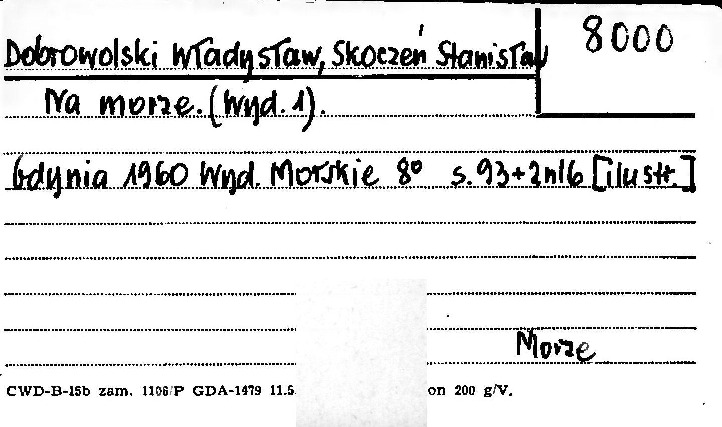 Dobrowolski Władysław, Skoczeń Stanisław
8000
Na morze. (Wyd. 1).
Gdynia 1960 Wyd. Morskie 8° s. 93+2nlb [ilustr.]
Morze
CWD-B-15b zam. 1106/P GDA-1479 11.5 on 200 g/V.